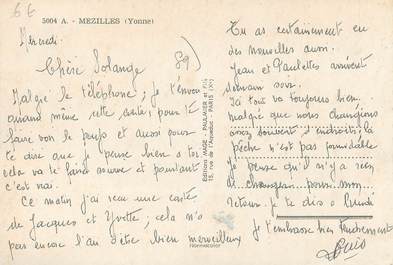 6€
5004 A. - MEZILLES (Yonne)
Mercredi.
89
Chère Solange
Malgré le téléphone; je t'envoie
quand même cette carte; pour te
faire voir le pays et aussi pour
te dire que je pense bien à toi
cela va te faire sourire et pourtant
c'est vrai.
Ce matin j'ai reçu une carte
de Jacques et Yvette; cela n'a
pas encore l'air d'être bien merveilleux
Editions MAGE - PAULMIER et Fils
15, rue de l'Aqueduc - PARIS (X°)
Tu as certainement eu
des nouvelles aussi.
Jean et Paulette arrivent
demain soir.
Ici tout va toujours bien
malgré que nous changions
assez souvent d'endroit; la
pêche n'est pas formidable
Je pense qu'il n'y a rien
de changé pour mon
retour. Je te dis à Lundi
Je t'embrasse bien tendrement